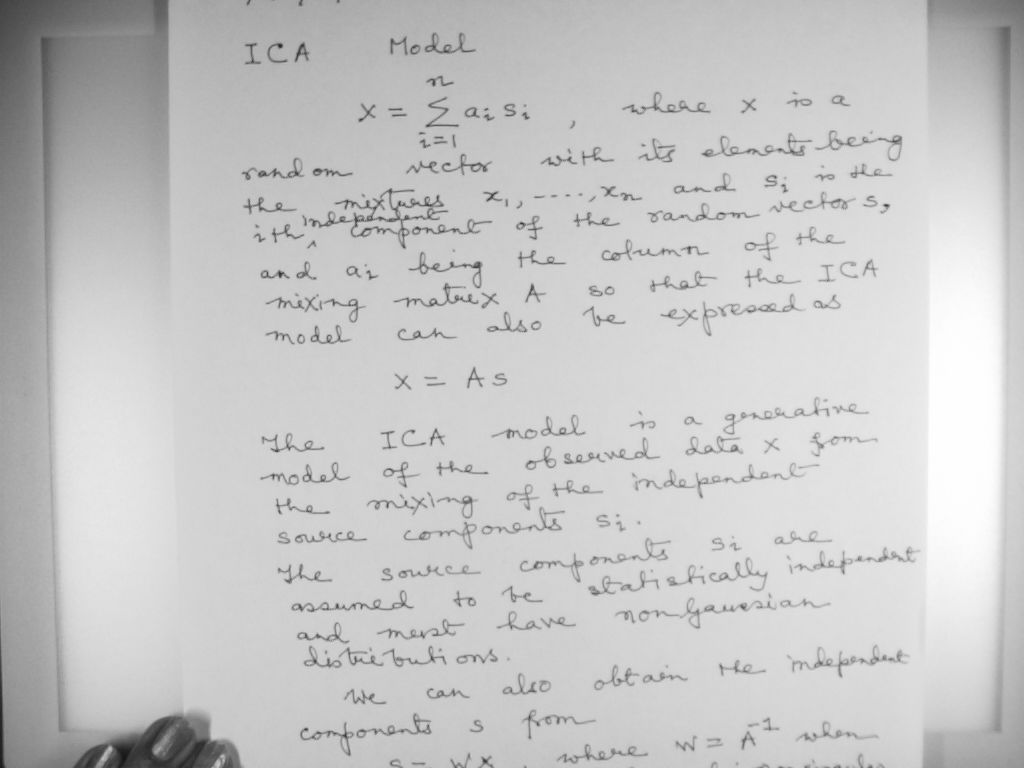 ICA Model
x = n∑i=1 ai si , where x is a
random vector with its elements being
the mixtures x1, ----, xn and si is the
ith independent component of the random vector s,
and ai being the column of the
mixing matrix A so that the ICA
model can also be expressed as
x = As
The ICA model is a generative
model of the observed data x from
the mixing of the independent
source components si.
The source components si are
assumed to be statistically independent
and must have nongaussian
distributions.
We can also obtain the independent
components s from
s = Wx , where W = A^-1 when